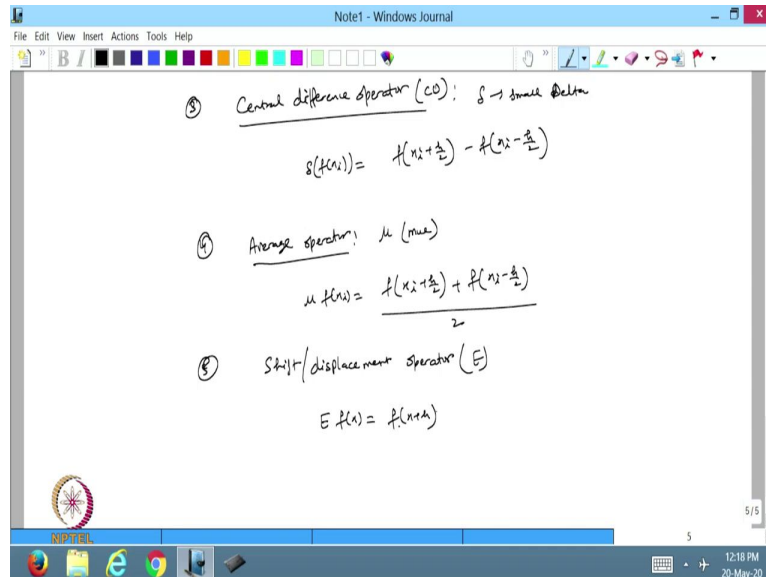 Note1 - Windows Journal
File Edit View Insert Actions Tools Help
B I
③ Central difference operator (CD): δ → small Delta
δ(f(xi)) = f(xi + h/2) - f(xi - h/2)
④ Average operator: μ (mue)
μ f(xi) = f(xi + h/2) + f(xi - h/2)
2
⑤ Shift/displacement operator (E)
E f(x) = f(x+h)
5/5
NPTEL
5
12:18 PM
20-May-20